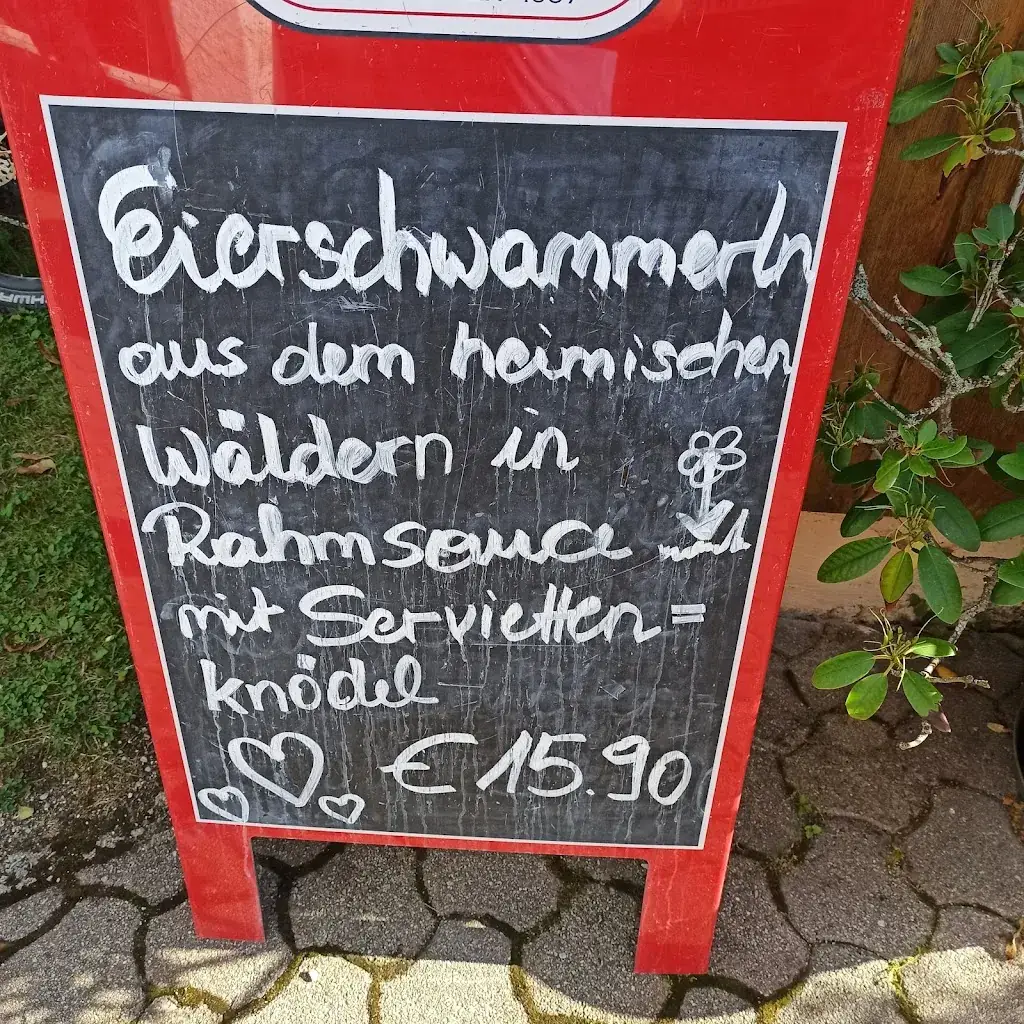 Eierschwammerln
aus dem heimischen
Wäldern in
Rahmsauce
mit Servietten=
knödel
€ 15.90